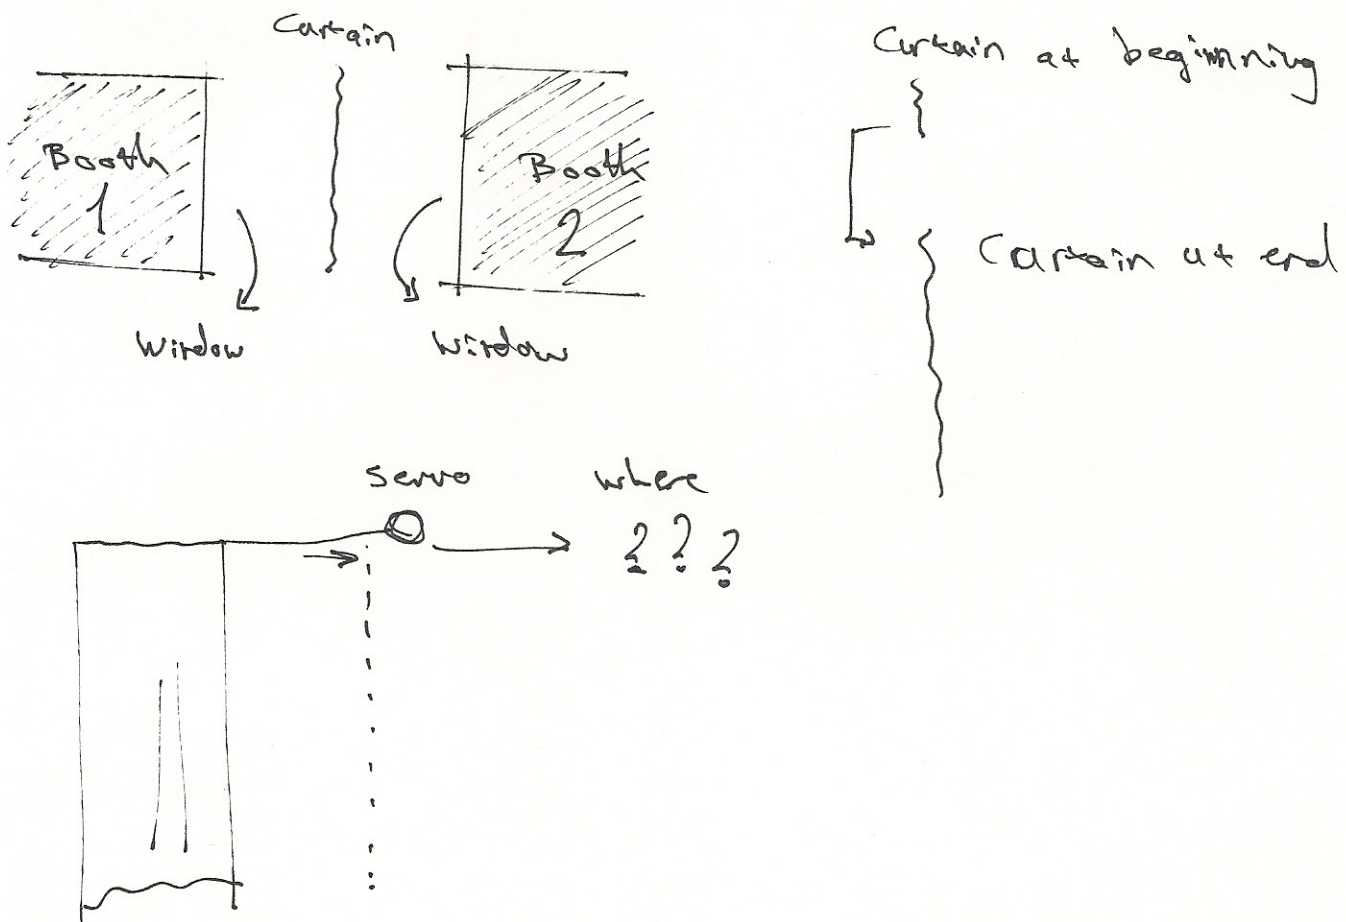 Curtain
Booth
1
Booth
2
Window
Window
Curtain at beginning
Curtain at end
servo
where
???